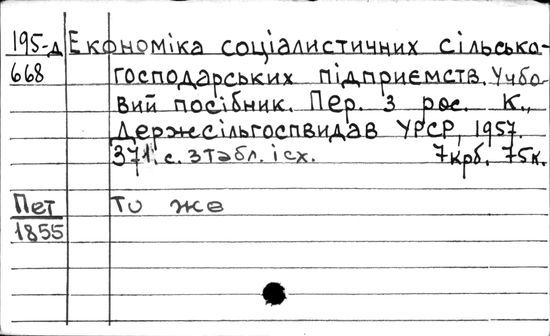 195-д Економіка соціалистичних сільсько-
668 господарських підприємств. Учбо-
вий посібник. Пер. з рос. К.,
Держсільгоспвидав УРСР, 1957.
371. с. з табл. і сх. 7крб. 75к.
Пет То же
1855